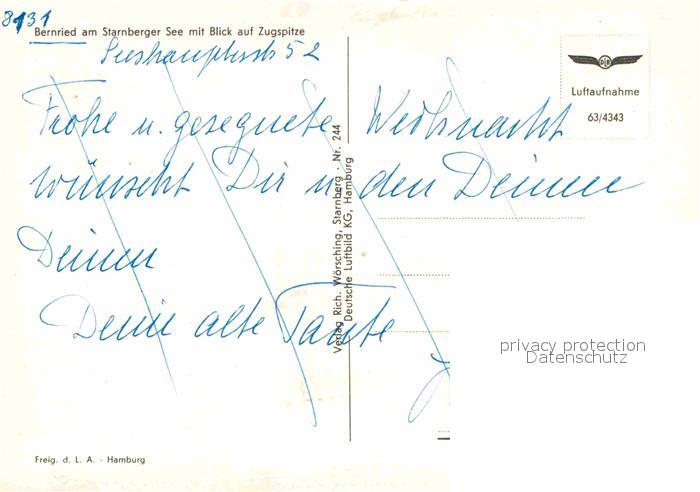 8131
Bernried am Starnberger See mit Blick auf Zugspitze
Seeshaupterstr 52
Luftaufnahme
63/4343
Frohe u. gesegnete Weihnacht
wünscht Dir u. den Deinen
Deinen
Deine alte Tante
Verlag Rich. Wörsching, Starnberg - Nr. 244
Deutsche Luftbild KG, Hamburg
privacy protection
Datenschutz
Freig. d. L. A. - Hamburg